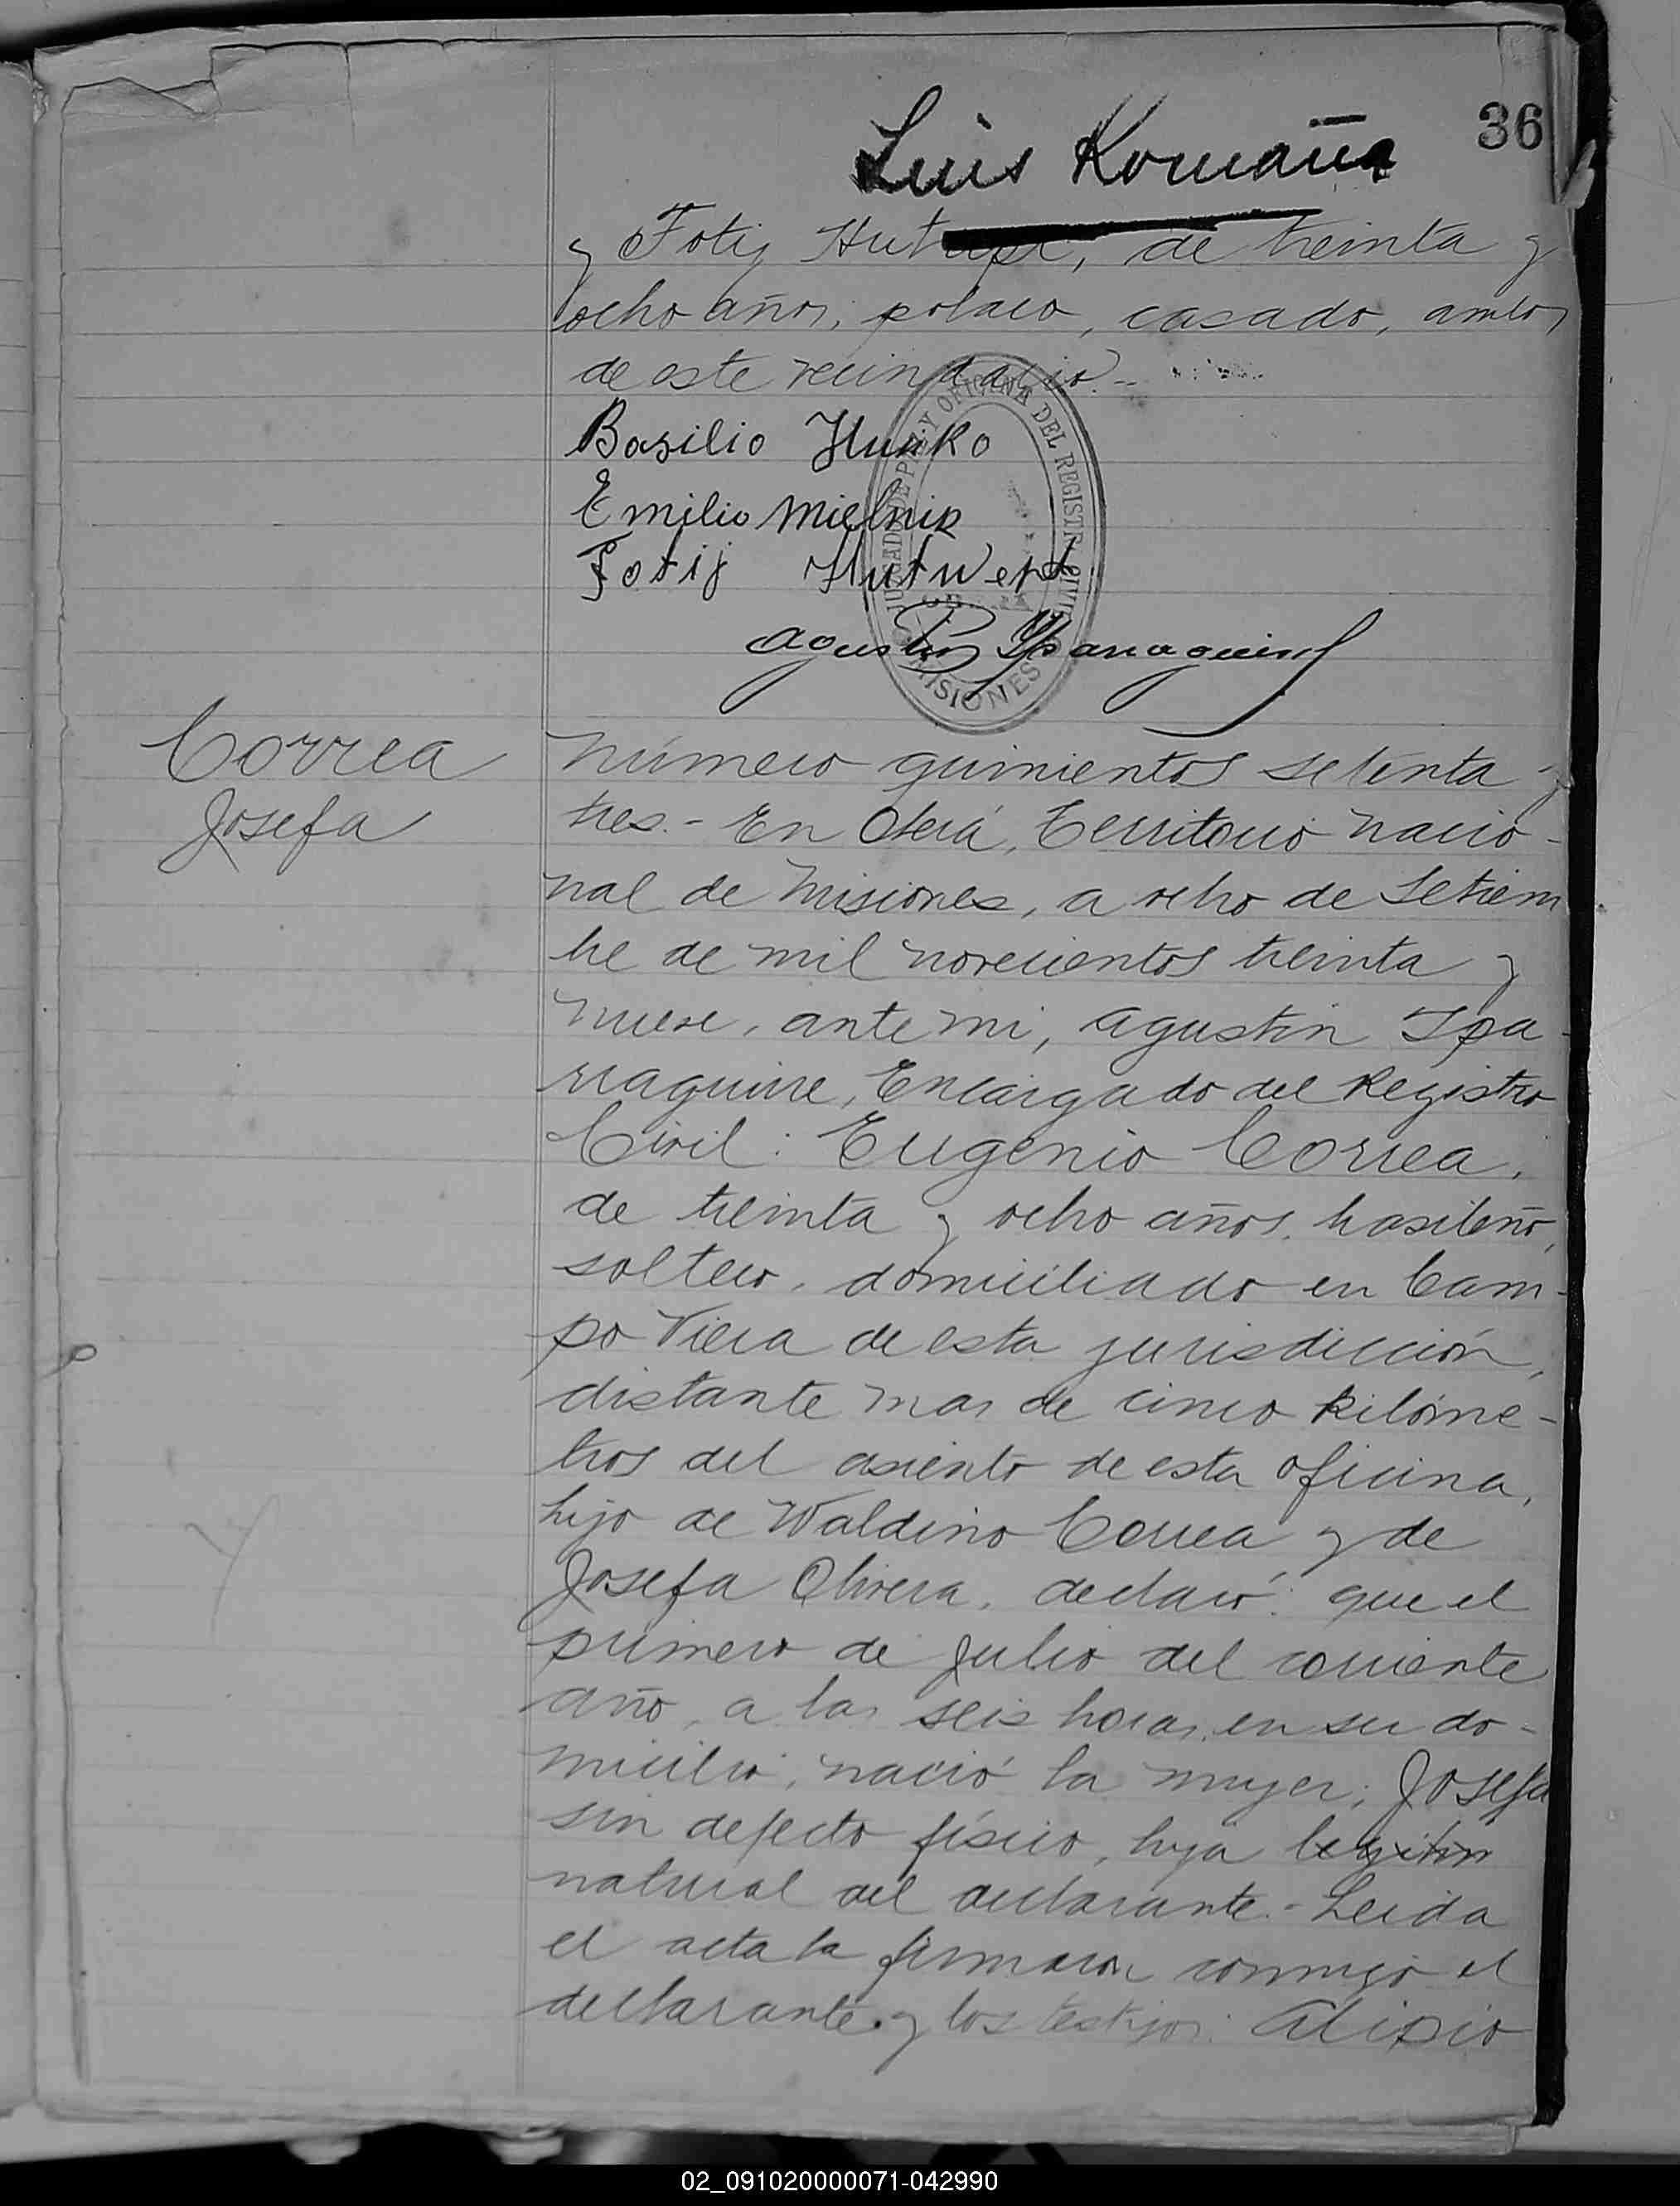 36
Luis Romaña
y Fotij Hutwept, de treinta y
ocho años, polaco, casado, ambos
de este vecindario.-
Basilio Hunko
Emilio Mielnik
Fotij Hutwept
JUZGADO DE PAZ Y OFICINA DEL REGISTRO CIVIL
MISIONES
Agustin Yparraguirre
Correa
Josefa
Número quinientos setenta y
tres.- En Oberá, Territorio nacio-
nal de Misiones, a ocho de Setiem
bre de mil novecientos treinta y
nueve, ante mi, Agustin Ypa-
rraguirre, Encargado del Registro
Civil: Eugenio Correa,
de treinta y ocho años, brasileño,
soltero, domiciliado en Cam-
po Viera de esta jurisdicción,
distante mas de cinco kilóme-
tros del asiento de esta oficina,
hijo de Waldino Correa y de
Josefa Olivera, declaró: que el
primero de Julio del corriente
año, a las seis horas, en su do-
micilio, nació la mujer; Josefa
sin defecto físico, hija legitim
natural del declarante.- Leida
el acta la firmaron conmigo el
declarante y los testigos: Alipio
02_091020000071-042990